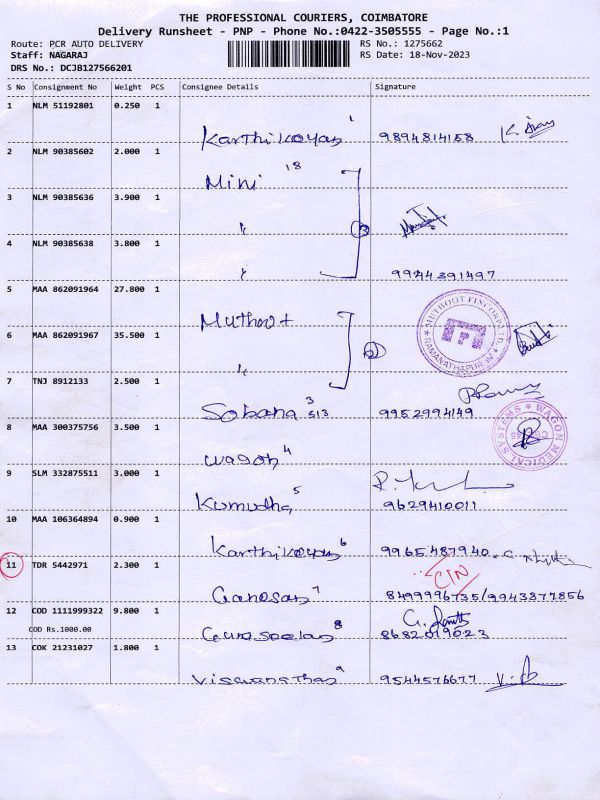 THE PROFESSIONAL COURIERS, COIMBATORE
Delivery Runsheet - PNP - Phone No.:0422-3505555 - Page No.:1
Route: PCR AUTO DELIVERY RS No.: 1275662
Staff: NAGARAJ RS Date: 18-Nov-2023
DRS No.: DCJB127566201
S No Consignment No Weight PCS Consignee Details Signature
1 NLM 51192801 0.250 1
Karthikeyan 1 9894814158
2 NLM 90385602 2.000 1
Mini 18
3 NLM 90385636 3.900 1
"
4 NLM 90385638 3.800 1
" 9944391497
5 MAA 862091964 27.800 1
Muthoot
MUTHOOT FINCORP LTD.
RAMANATHAPURAM
6 MAA 862091967 35.500 1
"
7 TNJ 8912133 2.500 1
Sobana 3 513 9952994149
8 MAA 300375756 3.500 1
wagon 4
WAGON MEDICAL SYSTEMS
9 SLM 332875511 3.000 1
Kumudha 5 9629410011
10 MAA 106364894 0.900 1
Karthikeyan 6 9965487940
11 TDR 5442971 2.300 1
CIN
Ganesan 7 8499996735/9943377856
12 COD 1111999322 9.800 1
COD Rs.1000.00
Gunaseelan 8 8682019023
13 COK 21231027 1.800 1
Viswanathan 9 9544576677